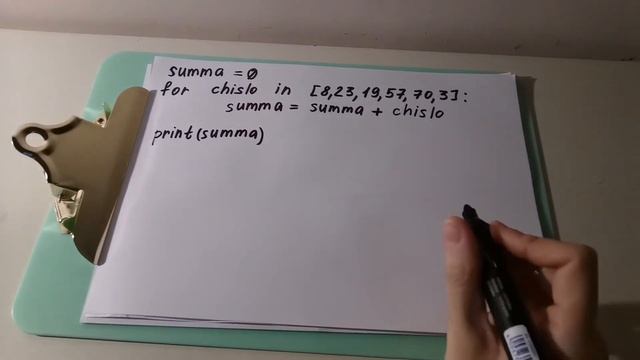 summa = 0
for chislo in [8,23,19,57,70,3]:
summa = summa + chislo
print(summa)